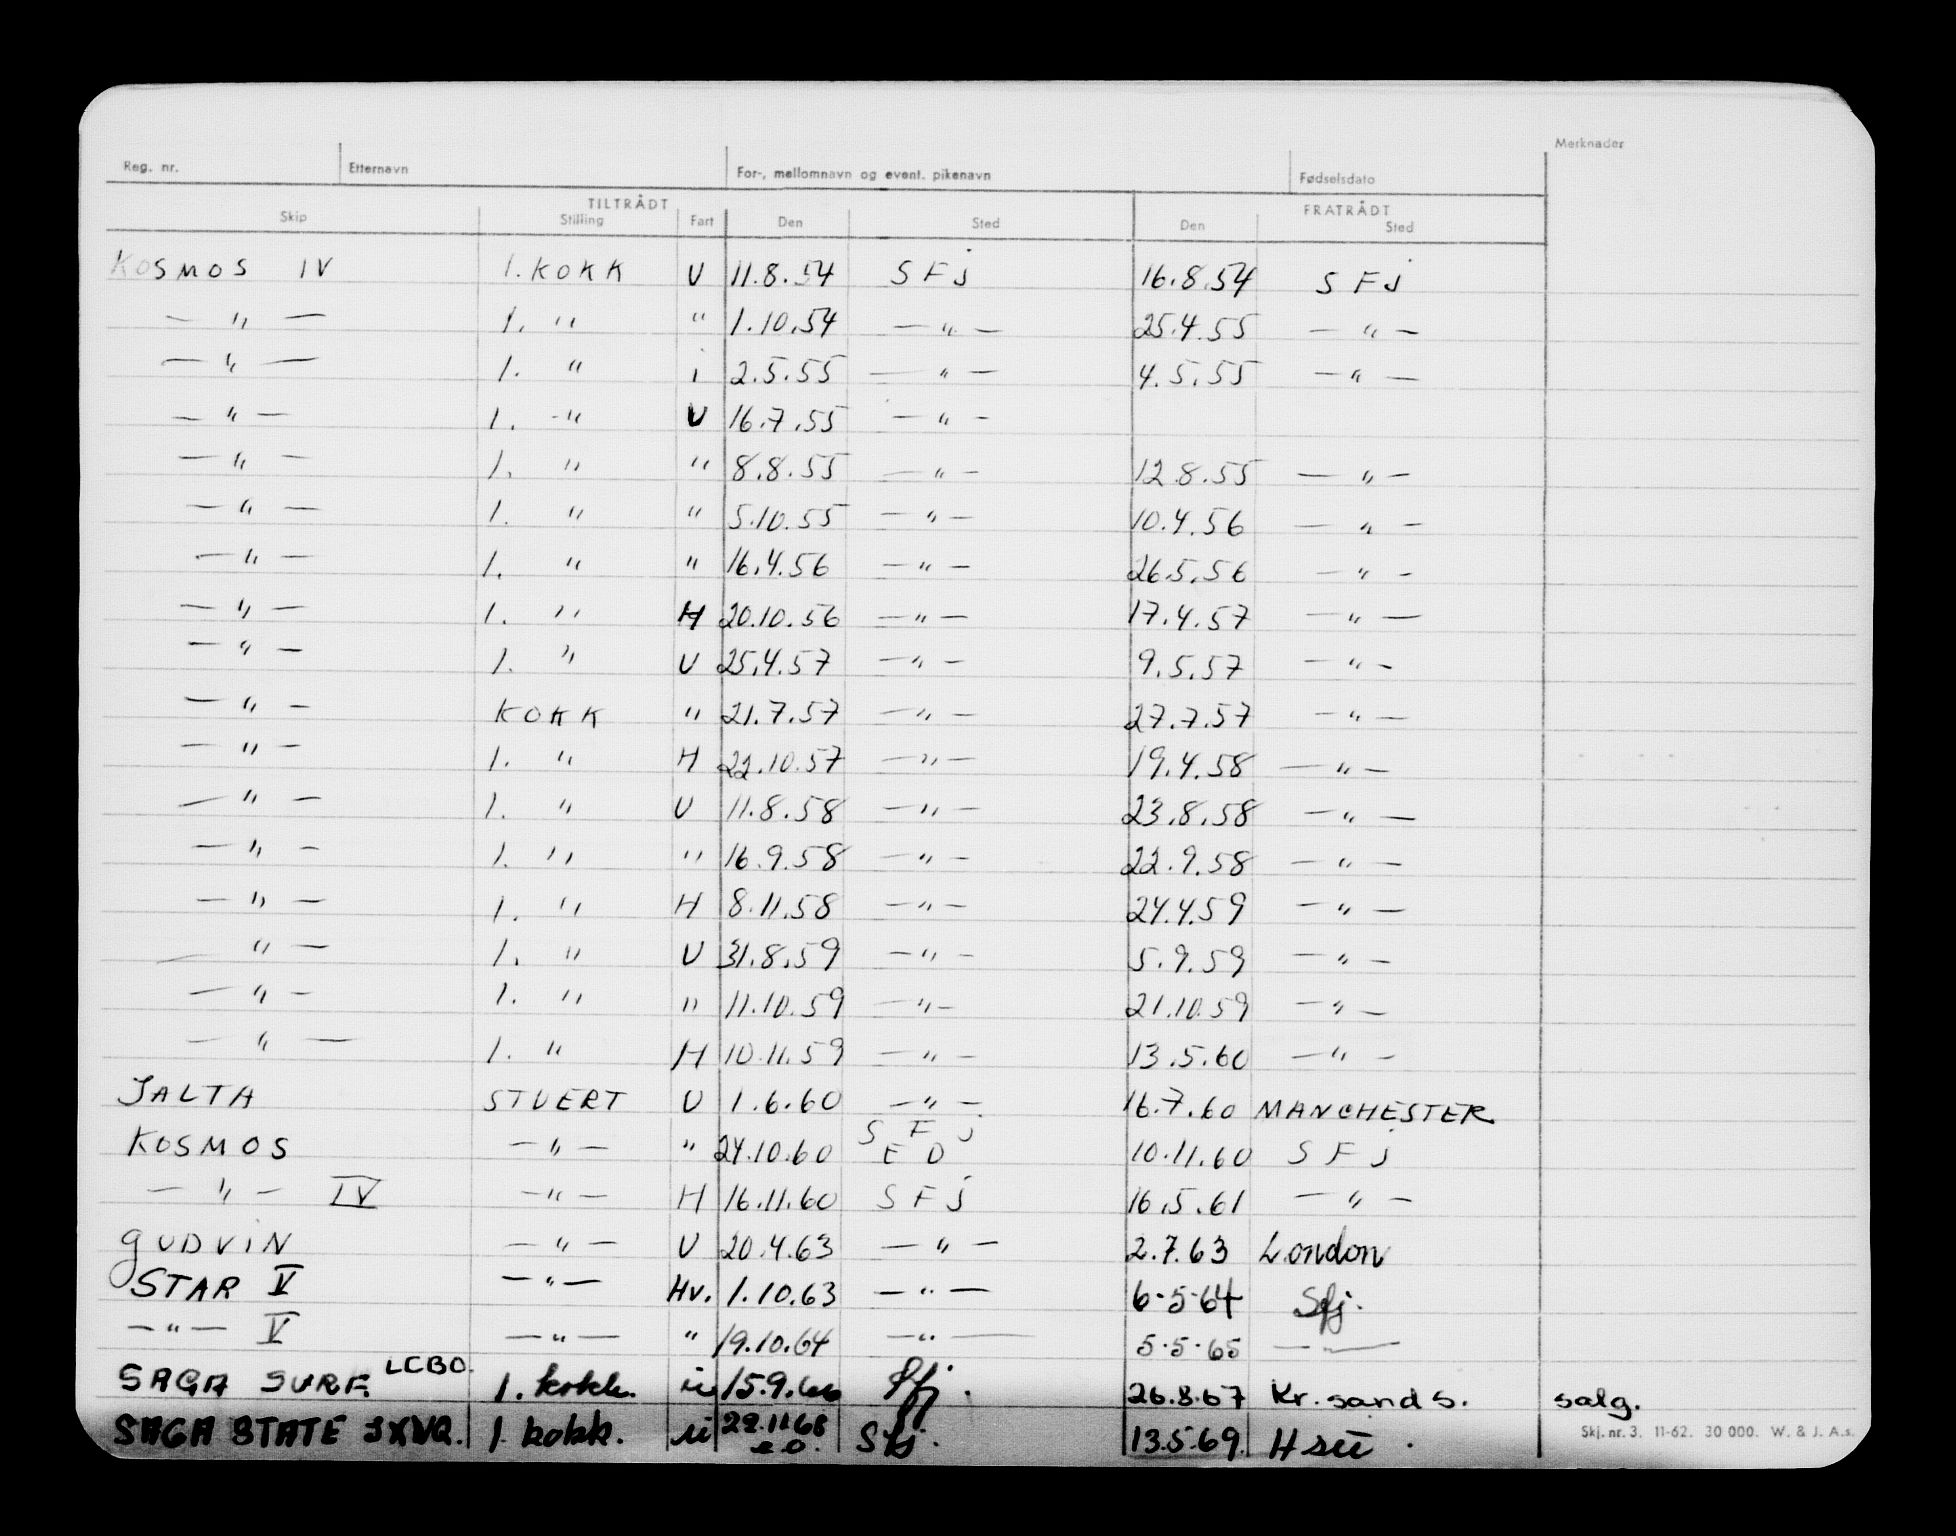 Merknader
Reg. nr. Etternavn For-, mellomnavn og event. pikenavn Fødselsdato
TILTRÅDT FRATRÅDT
Skip Stilling Fart Den Sted Den Sted
KOSMOS IV 1. KOKK U 11.8.54 SFj 16.8.54 SFj
— " — 1. " " 1.10.54 — " — 25.4.55 — " —
— " — 1. " i 2.5.55 — " — 4.5.55 — " —
— " — 1. -" U 16.7.55 — " —
— " — 1. " " 8.8.55 — " — 12.8.55 — " —
— " — 1. " " 5.10.55 — " — 10.4.56 — " —
— " — 1. " " 16.4.56 — " — 26.5.56 — " —
— " — 1. " H 20.10.56 — " — 17.4.57 — " —
— " — 1. " U 25.4.57 — " — 9.5.57 — " —
— " — KOKK " 21.7.57 — " — 27.7.57 — " —
— " — 1. " H 22.10.57 — " — 19.4.58 — " —
— " — 1. " U 11.8.58 — " — 23.8.58 — " —
— " — 1. " " 16.9.58 — " — 22.9.58 — " —
— " — 1. " H 8.11.58 — " — 24.4.59 — " —
— " — 1. " U 31.8.59 — " — 5.9.59 — " —
— " — 1. " " 11.10.59 — " — 21.10.59 — " —
— " — 1. " H 10.11.59 — " — 13.5.60 — " —
JALTA STUERT U 1.6.60 — " — 16.7.60 MANCHESTER
KOSMOS — " — " 24.10.60 SFj ED 10.11.60 SFj
— " — IV — " — H 16.11.60 SFj 16.5.61 — " —
GUDVIN — " — U 20.4.63 — " — 2.7.63 London
STAR V — " — Hv. 1.10.63 — " — 6.5.64 Sfj.
— " — V — " — " 19.10.64 — " — 5.5.65 — —
SAGA SURF. LCBO. 1. kokk. u 15.9.66 Sfj. 26.8.67 Kr. sand S. salg.
SAGA STATE JXVQ. 1. kokk. u 22.11.68 e.o. Sfj. 13.5.69. H
Skj. nr. 3. 11-62. 30 000. W. & J. A.s.